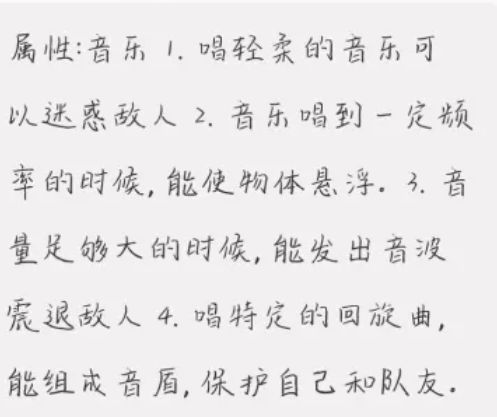 属性:音乐 1. 唱轻柔的音乐可
以迷惑敌人 2. 音乐唱到一定频
率的时候,能使物体悬浮。3. 音
量足够大的时候,能发出音波
震退敌人 4. 唱特定的回旋曲,
能组成音盾,保护自己和队友.